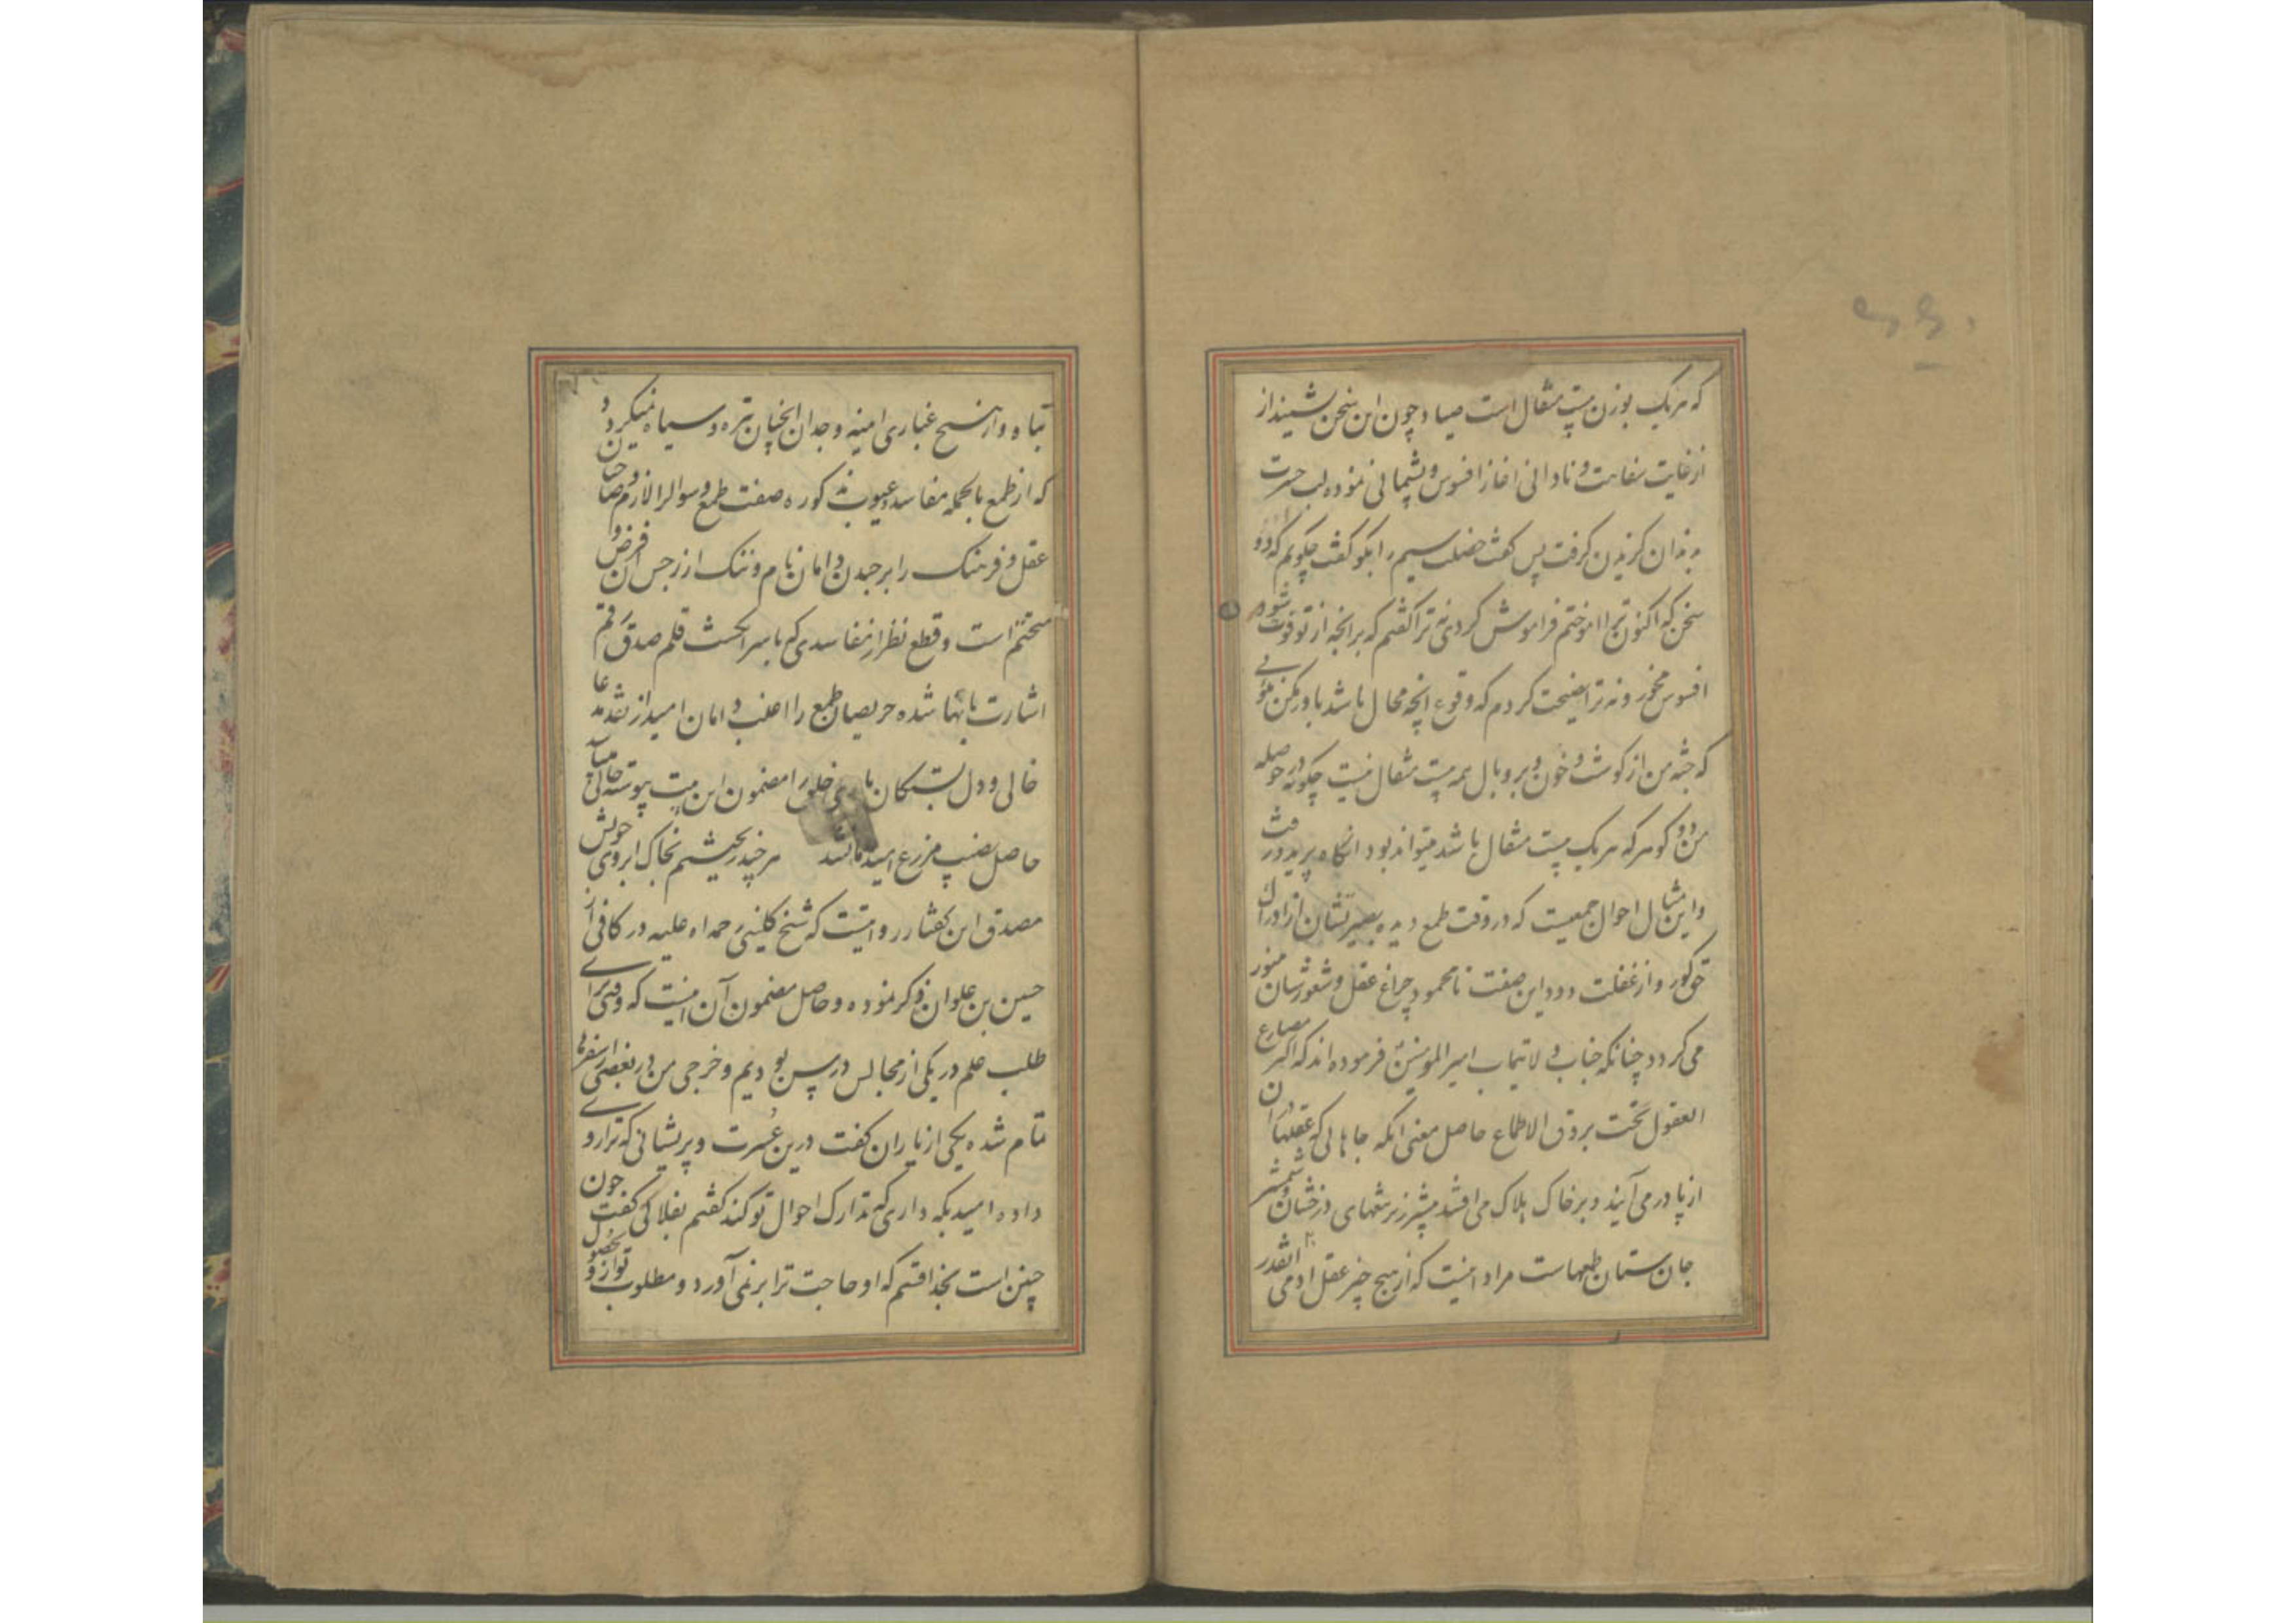 که هر یک بوزن بیست مثقال است صیاد چون این سخن شنید از
از غایت سفاهت و نادانی اغاز افسوس و پشیمانی نموده لب حسرت
بدندان کزیدن کرفت پس کفت خصلت سیم را بکو کفت چکویم که دو
سخن که اکنون ترا اموختم فراموش کردی نه ترا کفتم که بر انچه از تو فوت شود
افسوس مخور و نه ترا نصیحت کردم که وقوع انچه محال باشد باور مکن
که جثه من از کوشت و خون و پر و بال همه بیست مثقال نیست چکونه در حوصله
من دو کوهر که هر یک بیست مثقال باشد میتواند بود انکاه پرید و رفت
و این مثال احوال جمعیست که در وقت طمع دیده بصیرتشان از ادراک
حق کور و از غفلت دود این صفت نامحمود چراغ عقل و شعورشان
می کردد چنانکه جناب ولایتماب امیر المومنین فرموده اند که اکثر مصارع
العقول تحت بروق الاطماع حاصل معنی انکه جاهائی که عقلها در ان
از پا در می آیند و بر خاک هلاک می افتند بیشتر زیر برقهای درخشان شمشیر
جان ستان طمعهاست مراد اینست که از هیچ چیز عقل ادمی انقدر
تباه و از هیچ غباری اینه وجدان انچنان تیره و سیاه نمیکردد
که از طمع بالجمله مفاسد و عیوب مذکوره صفت طمع و سوال را لازم و صاحبان
عقل و فرهنک را بر چیدن دامان نام و ننک از رجس ان فرض و
متحتم است و قطع نظر از مفاسدی که باسر انکشت قلم صدق رقم
اشارت بانها شده حریصان طمع را اغلب دامان امید از نقد مدعا
خالی و دل بستکان یاری خلق را مضمون این بیت پیوسته حالی
حاصل نصیب مزرع امید ما نشد هر چند ریختیم بخاک ابروی خویش
مصدق این کفتار روایتیست که شیخ کلینی رحمه الله علیه در کافی از
حسین بن علوان ذکر نموده و حاصل مضمون آن اینست که وقتی برای
طلب علم در یکی از مجالس درس بودیم و خرجی من در بعضی از سفرها
تمام شده یکی از یاران کفت درین عسرت و پریشانی که ترا روی
داده امید بکه داری که تدارک احوال تو کند کفتم بفلانکس کفت چون
چنین است بخدا قسم که او حاجت ترا بر نمی آورد و مطلوب تو از و بحصول